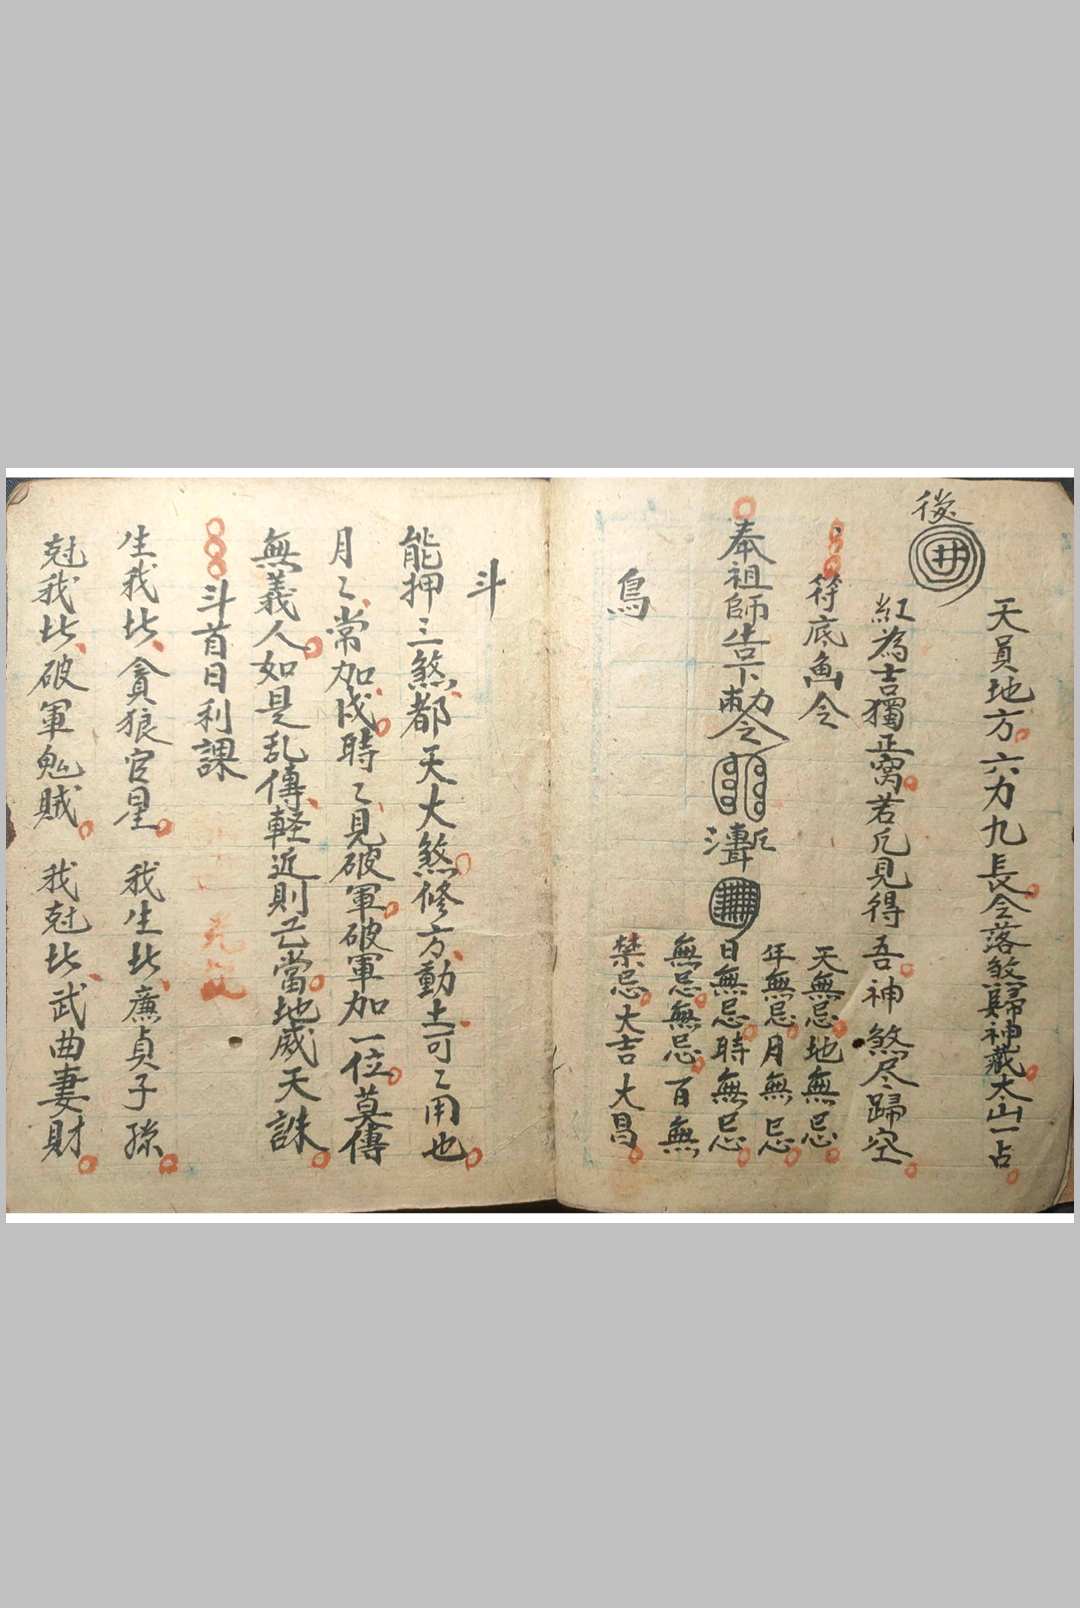 天員地方六力九長今落煞歸神藏太山一占
後
井
紅為吉獨正窩若凡見得吾神煞尽歸空
符底魚令
天無忌地無忌
年無忌月無忌
奉祖師告下勅令
日無忌時無忌
無忌無忌百無
禁忌大吉大昌
鳥
斗
能押三煞都天大煞修方動土可〻用也
月〻常加戌時〻見破軍破軍加一位莫傳
無義人如是乱傳軽近則亡當地滅天誅
斗首日利課
生我比貪狼官星 我生比廉貞子孫
尅我比破軍鬼賊 我尅比武曲妻財